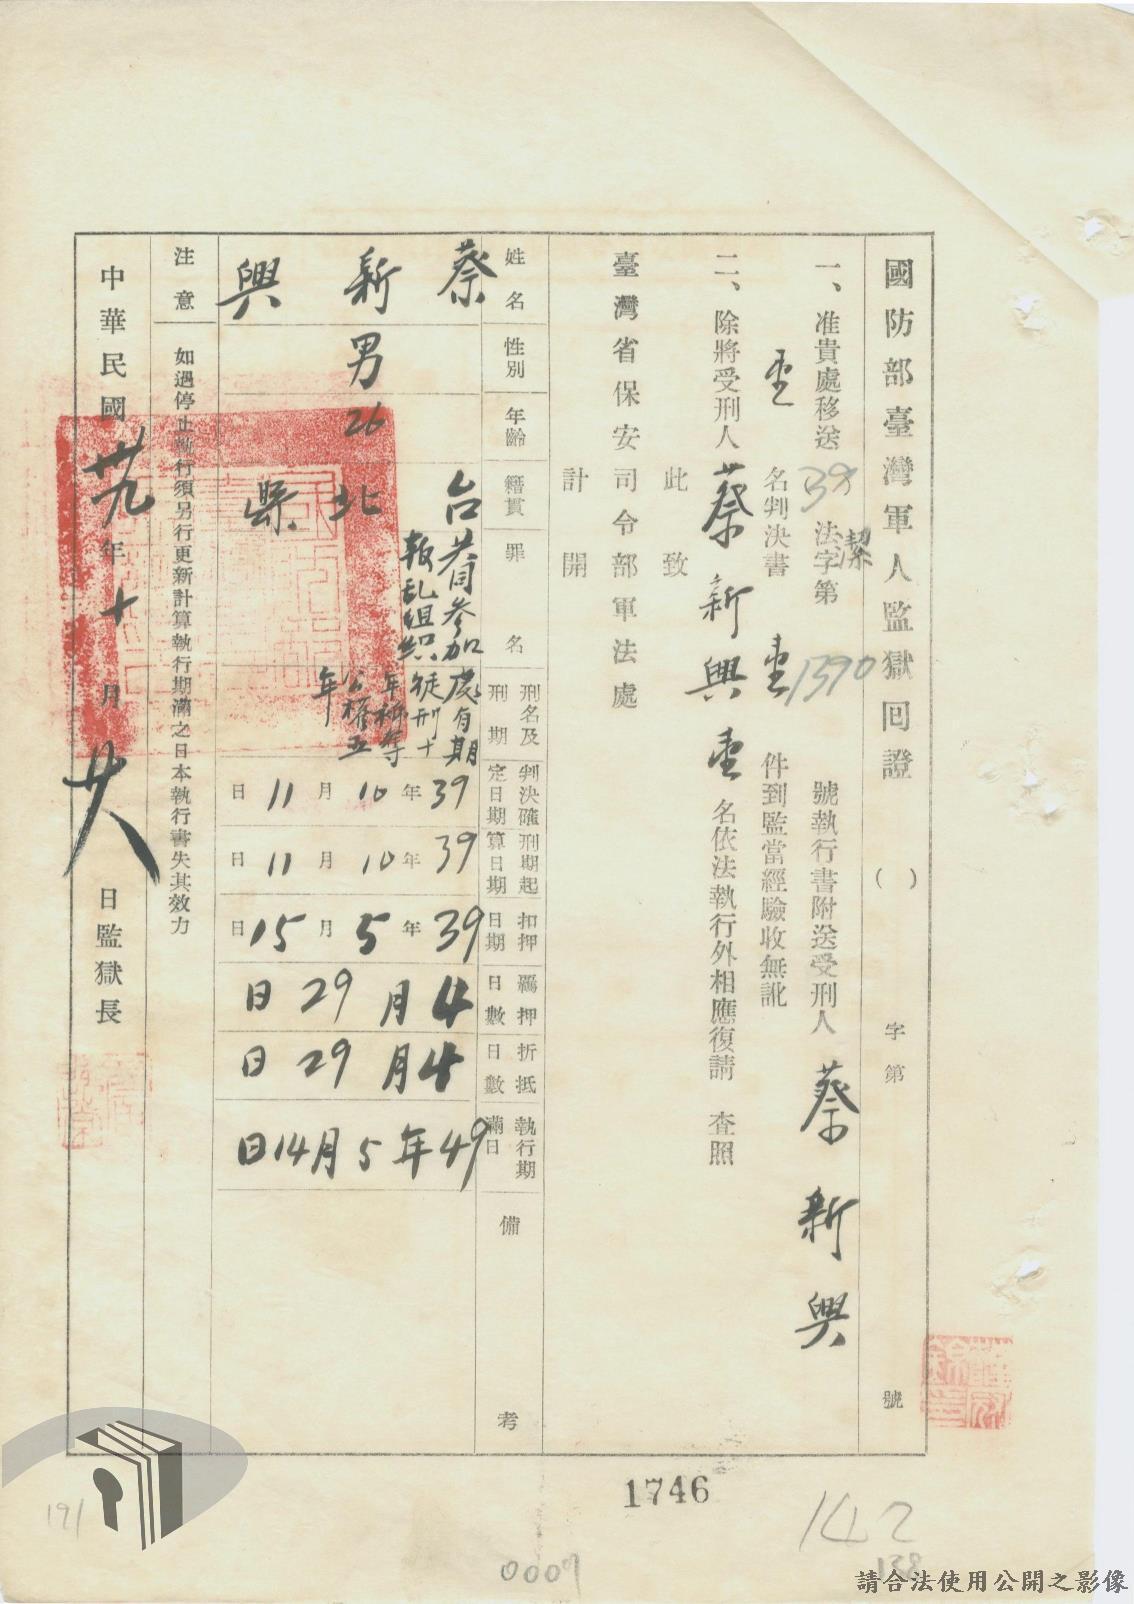 國防部臺灣軍人監獄回證 （ ） 字第 號
一、准貴處移送 39 潔 法字第 1390 號執行書附送受刑人 蔡新興
壹 名判決書 壹 件到監當經驗收無訛
二、除將受刑人 蔡新興 壹 名依法執行外相應復請 查照
此致
臺灣省保安司令部軍法處
計開
姓名 蔡新興
性別 男
年齡 26
籍貫 台北縣
罪名 共同參加叛乱組織
刑名及刑期 處有期徒刑十年褫奪公權五年
判決確定日期 39年10月11日
刑期起算日期 39年10月11日
扣押日期 39年5月15日
羈押日數 4月29日
折抵日數 4月29日
執行期滿日 49年5月14日
備考
注意 如遇停止執行須另行更新計算執行期滿之日本執行書失其效力
中華民國 卅九 年 十 月 廿八 日監獄長
1746
142
138
191
0007
請合法使用公開之影像